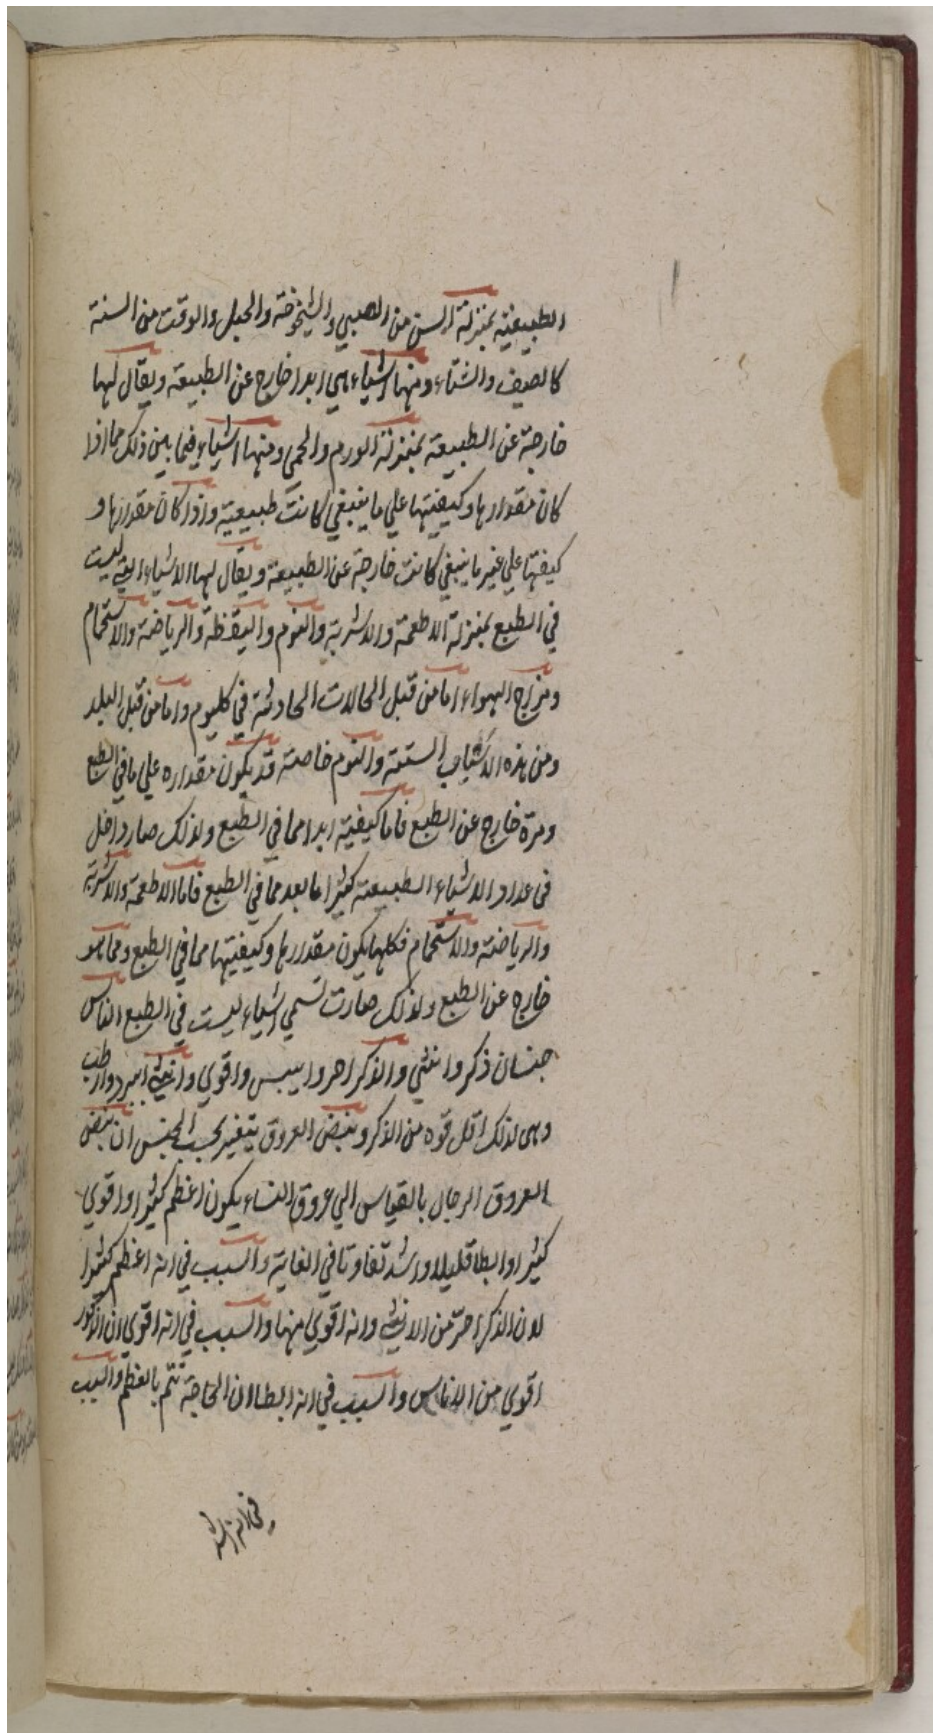 الطبيعية بمنزلة السن من الصبي والشيخوخة والحبل والوقت من السنة
كالصيف والشتاء ومنها اشياء هي ابدا خارج عن الطبيعة ويقال لها
خارجة عن الطبيعة بمنزلة الورم والحمي ومنها اشياء فيما بين ذلك مما اذا
كان مقدارها وكيفيتها علي ما ينبغي كانت طبيعية واذا كان مقدارها و
كيفيتها علي غير ما ينبغي كانت خارجة عن الطبيعة ويقال لها الاشياء التي ليست
في الطبع بمنزلة الاطعمة والاشربة والنوم واليقظة والرياضة والاستحمام
ومزاج الهواء اما من قبل الحالات الحادثة في كليوم واما من قبل البلد
ومن هذه الاسباب الستة والنوم خاصة قد يكون مقداره علي ما في الطبع
ومرة خارج عن الطبع فاما كيفيته ابدا مما في الطبع ولذلك صار داخل
في عداد الاشياء الطبيعة كثيرا ما بعد مما في الطبع فاما الاطعمة والاشربة
والرياضة والاستحمام فكلها يكون مقدارها وكيفيتها مما في الطبع ومما هو
خارج عن الطبع ولذلك صارت تسمي اشياء ليست في الطبع الناس
جنسان ذكر وانثي والذكر احر وايبس واقوي وانثي ابرد وارطب
وهي لذلك اقل قوه من الذكر ونبض العروق يتغير بحسب الجنس ان نبض
العروق الرجال بالقياس الي عروق النساء يكون اعظم كثيرا واقوي
كثيرا وابطا قليلا واشد تفاوتا في الغاية والسبب في انه اعظم كثيرا
لان الذكر احر من الانثي وانه اقوي منها والسبب في انه اقوي ان الذكور
اقوي من الاناس والسبب في انه ابطا ان الحاجة تتم بالعظم والسبب
في انه اشد